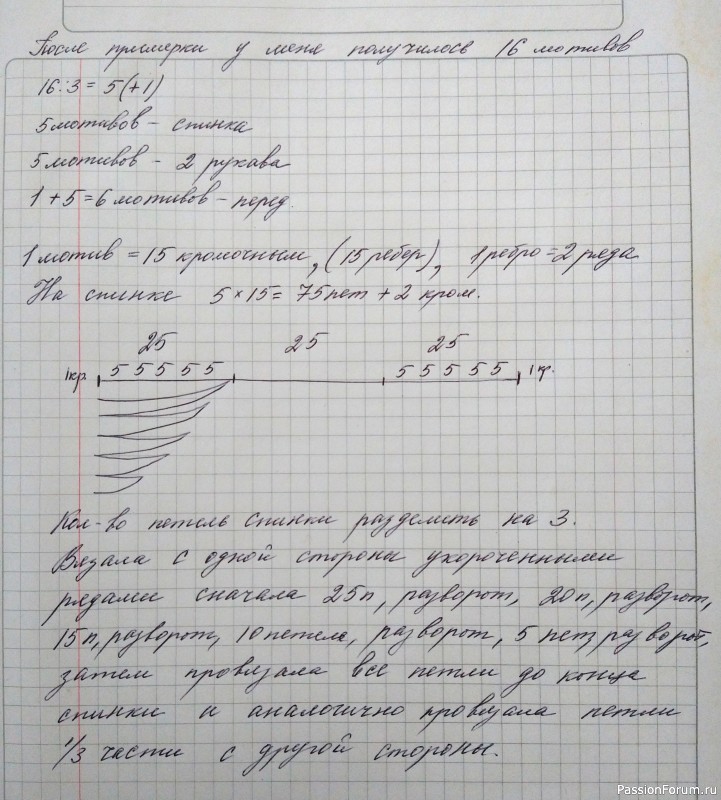 После примерки у меня получилось 16 мотивов
16:3 = 5(+1)
5 мотивов - спинка
5 мотивов - 2 рукава
1 + 5 = 6 мотивов - перед.
1 мотив = 15 кромочным, (15 ребер), 1 ребро = 2 ряда
На спинке 5 × 15 = 75 пет + 2 кром.
25 25 25
1 кр. 5 5 5 5 5 5 5 5 5 5 1 кр.
Кол-во петель спинки разделить на 3.
Вязала с одной стороны укороченными
рядами сначала 25п, разворот, 20п, разворот,
15п, разворот, 10 петель, разворот, 5 пет, разворот,
затем провязала все петли до конца
спинки и аналогично провязала петли
1/3 части с другой стороны.
PassionForum.ru